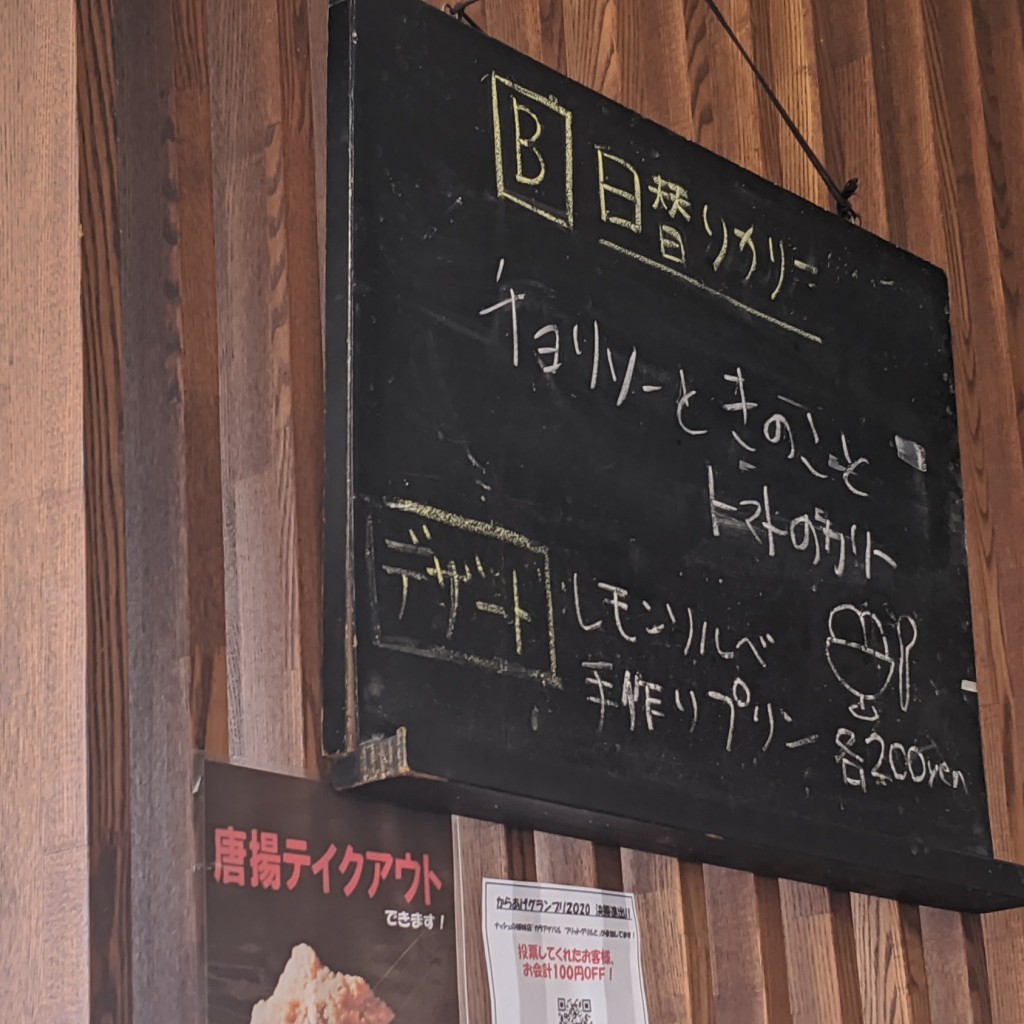 B 日替りカリー
チョリソーときのこと
トマトのカリー
デザート
レモンソルベ
手作りプリン
各200yen
唐揚テイクアウト
できます!
からあげグランプリ2020 決勝進出!!
投票してくれたお客様、
お会計100円OFF!